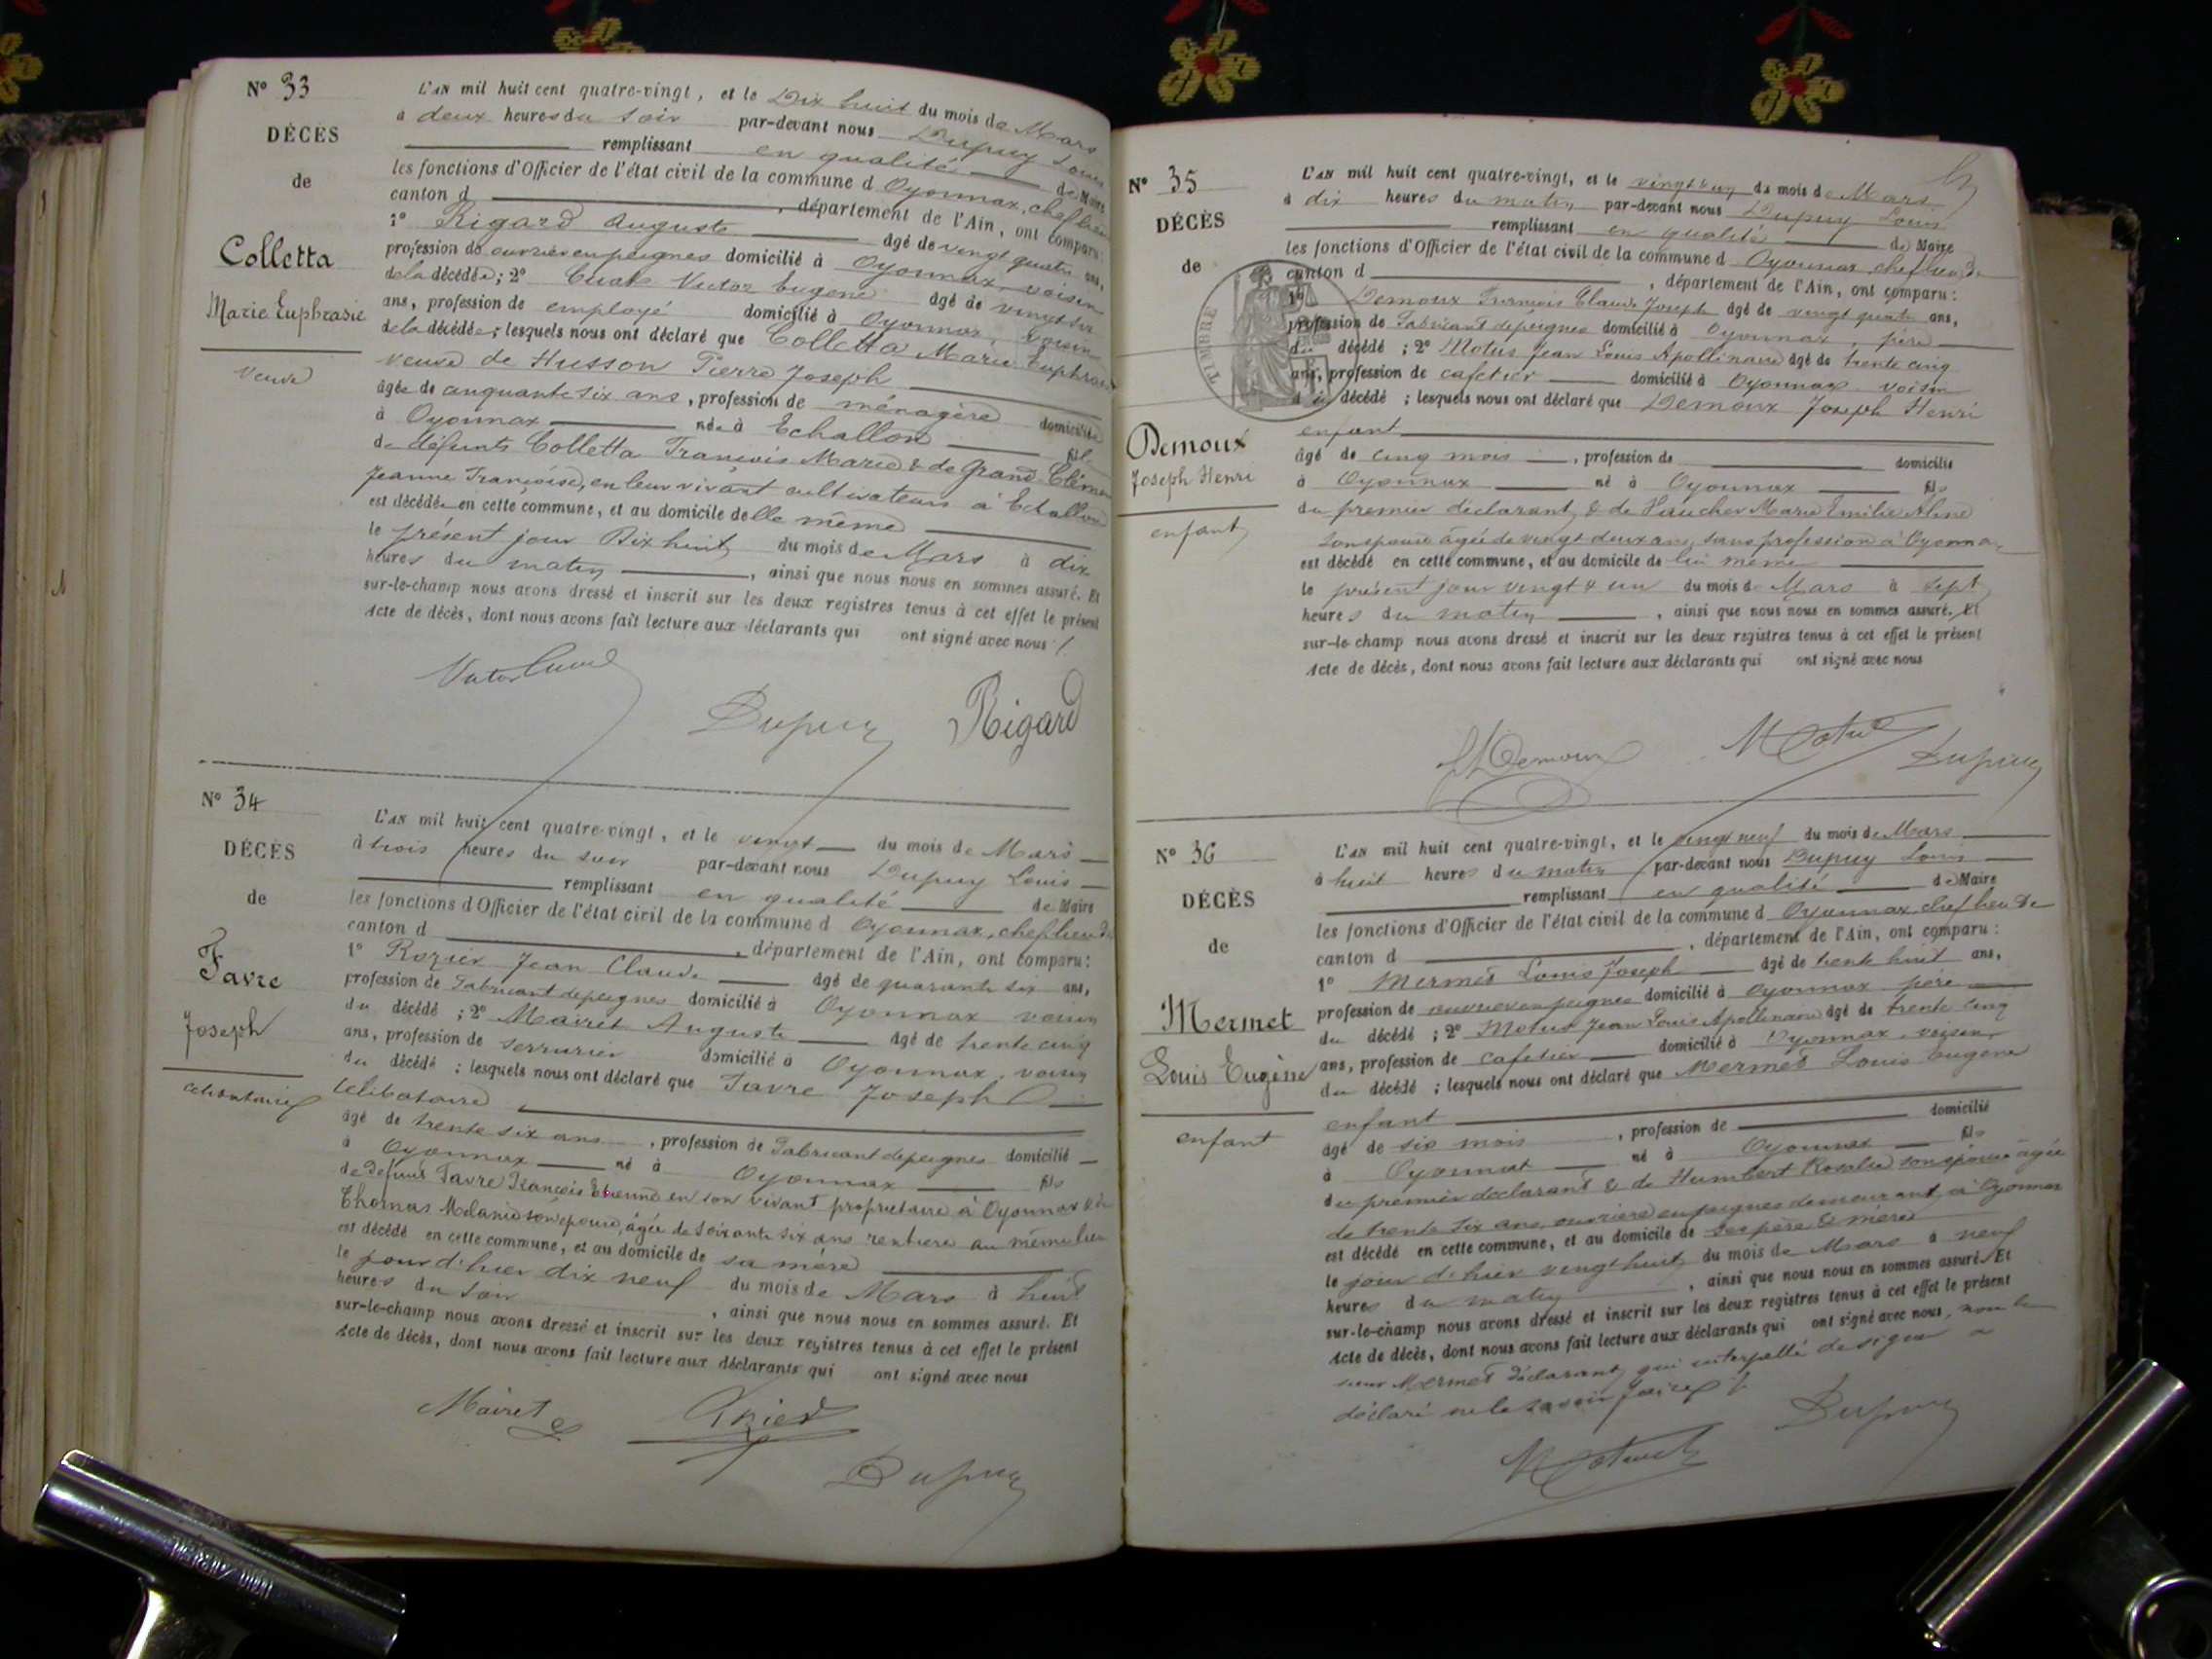 N° 33
DÉCÈS
de
Colletta
Marie Euphrasie
veuve
L'AN mil huit cent quatre-vingt, et le Dix huit du mois de Mars
à deux heures du soir par-devant nous Dupuy Louis
remplissant en qualité de Maire
les fonctions d'Officier de l'état civil de la commune d Oyonnax, chef lieu
canton d , département de l'Ain, ont comparu:
1° Rigard Auguste âgé de vingt quatre ans,
profession de ouvrier en peignes domicilié à Oyonnax, voisin
de la décédée; 2° Victor Eugène âgé de vingt six
ans, profession de employé domicilié à Oyonnax, voisin
de la décédée; lesquels nous ont déclaré que Colletta Marie Euphrasie
veuve de Husson Pierre Joseph
âgée de cinquante six ans, profession de ménagère domiciliée
à Oyonnax née à Echallon fille
de défunts Colletta François Marie & de Grand Clément
Jeanne Françoise, en leur vivant cultivateurs à Echallon
est décédée en cette commune, et au domicile de elle même
le présent jour Dix huit du mois de Mars à dix
heures du matin , ainsi que nous nous en sommes assuré. Et
sur-le-champ nous avons dressé et inscrit sur les deux registres tenus à cet effet le présent
Acte de décès, dont nous avons fait lecture aux déclarants qui ont signé avec nous
Victor
Dupuy
Rigard
N° 34
DÉCÈS
de
Favre
Joseph
célibataire
L'AN mil huit cent quatre-vingt, et le vingt du mois de Mars
à trois heures du soir par-devant nous Dupuy Louis
remplissant en qualité de Maire
les fonctions d'Officier de l'état civil de la commune d Oyonnax, chef lieu de
canton d , département de l'Ain, ont comparu:
1° Rozier Jean Claude âgé de quarante six ans,
profession de Fabricant de peignes domicilié à Oyonnax voisin
du décédé; 2° Mairet Auguste âgé de trente cinq
ans, profession de serrurier domicilié à Oyonnax, voisin
du décédé; lesquels nous ont déclaré que Favre Joseph
célibataire
âgé de trente six ans, profession de Fabricant de peignes domicilié
à Oyonnax né à Oyonnax fils
de défunt Favre François Etienne en son vivant propriétaire à Oyonnax & de
Thomas Mélanie son épouse, âgée de soixante six ans rentière au même lieu
est décédé en cette commune, et au domicile de sa mère
le jour d'hier dix neuf du mois de Mars à huit
heures du soir , ainsi que nous nous en sommes assuré. Et
sur-le-champ nous avons dressé et inscrit sur les deux registres tenus à cet effet le présent
Acte de décès, dont nous avons fait lecture aux déclarants qui ont signé avec nous
Mairet
Dupuy
N° 35
DÉCÈS
de
Demoux
Joseph Henri
enfant
TIMBRE
L'AN mil huit cent quatre-vingt, et le vingt & un du mois de Mars
à dix heures du matin par-devant nous Dupuy Louis
remplissant en qualité de Maire
les fonctions d'Officier de l'état civil de la commune d Oyonnax chef lieu de
canton d , département de l'Ain, ont comparu:
1° Demoux François Claude Joseph âgé de vingt quatre ans,
profession de Fabricant de peignes domicilié à Oyonnax, père
du décédé; 2° Motus Jean Louis Apollinaire âgé de trente cinq
ans, profession de cafetier domicilié à Oyonnax voisin
du décédé; lesquels nous ont déclaré que Demoux Joseph Henri
enfant
âgé de cinq mois, profession de domicilié
à Oyonnax né à Oyonnax fils
du premier déclarant & de Marie Emélie Aline
son épouse âgée de vingt deux ans, sans profession à Oyonnax
est décédé en cette commune, et au domicile de lui même
le présent jour vingt & un du mois de Mars à sept
heures du matin , ainsi que nous nous en sommes assuré. Et
sur-le-champ nous avons dressé et inscrit sur les deux registres tenus à cet effet le présent
Acte de décès, dont nous avons fait lecture aux déclarants qui ont signé avec nous
Demoux
Dupuy
N° 36
DÉCÈS
de
Mermet
Louis Eugène
enfant
L'AN mil huit cent quatre-vingt, et le vingt neuf du mois de Mars
à huit heures du matin par-devant nous Dupuy Louis
remplissant en qualité de Maire
les fonctions d'Officier de l'état civil de la commune d Oyonnax chef lieu de
canton d , département de l'Ain, ont comparu:
1° Mermet Louis Joseph âgé de trente huit ans,
profession de ouvrier en peignes domicilié à Oyonnax père
du décédé; 2° Motus Jean Louis Apollinaire âgé de trente cinq
ans, profession de cafetier domicilié à Oyonnax, voisin
du décédé; lesquels nous ont déclaré que Mermet Louis Eugène
enfant
âgé de six mois, profession de domicilié
à Oyonnax né à Oyonnax fils
du premier déclarant & de Humbert Rosalie son épouse âgée
de trente six ans, ouvrière en peignes demeurant à Oyonnax
est décédé en cette commune, et au domicile de ses père & mère
le jour d'hier vingt huit du mois de Mars à neuf
heures du matin , ainsi que nous nous en sommes assuré. Et
sur-le-champ nous avons dressé et inscrit sur les deux registres tenus à cet effet le présent
Acte de décès, dont nous avons fait lecture aux déclarants qui ont signé avec nous, non le
sieur Mermet déclarant, qui interpellé de signer a
déclaré ne le savoir faire
Dupuy